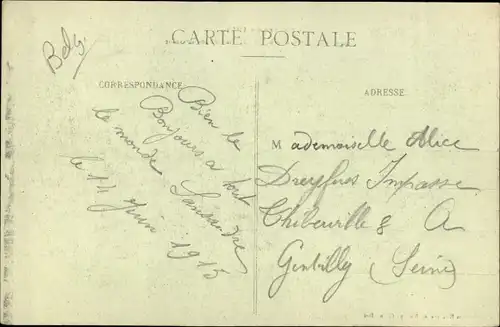 CARTE POSTALE
Bdg
CORRESPONDANCE
ADRESSE
Bien le
Bonjours a tout
le monde
le 14 Juin 1915
Mademoiselle Alice
Dreyfus Impasse
8 A
Gentilly (Seine)